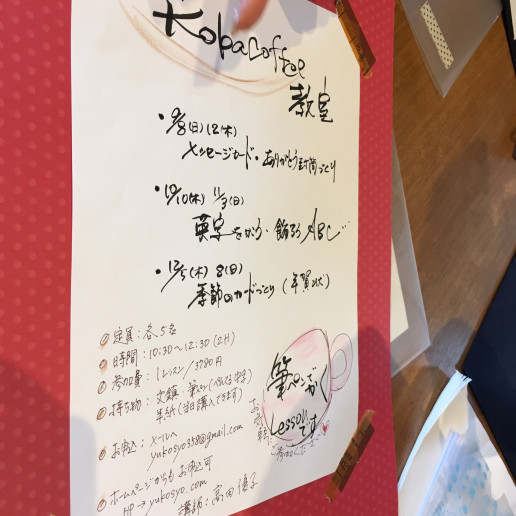 KobaCoffee
教室
・9/8(日)12(木)
メッセージカード・ありがとう封筒づくり
・10/10(木) 11/3(日)
英字をかこう・飾ろうABC
・12/5(木) 8(日)
季節のカードづくり (年賀状)
定員:各5名
時間:10:30〜12:30 (2H)
参加費:1レッスン/3780円
持ち物:文鎮・筆ペン
半紙(当日購入できます)
お申込:メールへ
yukosyo358@gmail.com
ホームページからもお申込可
HP→yukosyo.com
講師:高田優子
筆ペンでかく
Lessonです